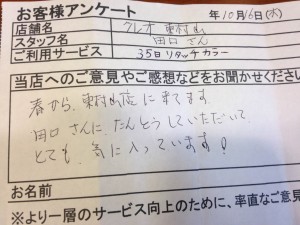 お客様アンケート 年10月16日(水)
店舗名 クレオ 東村山
スタッフ名 田口さん
ご利用サービス 35日リタッチカラー
当店へのご意見やご感想などをお聞かせください
春から、東村山店に来てます。
田口さんに、たんとうしていただいて
とても、気に入っています!
お名前
※より一層のサービス向上のために、率直なご意見